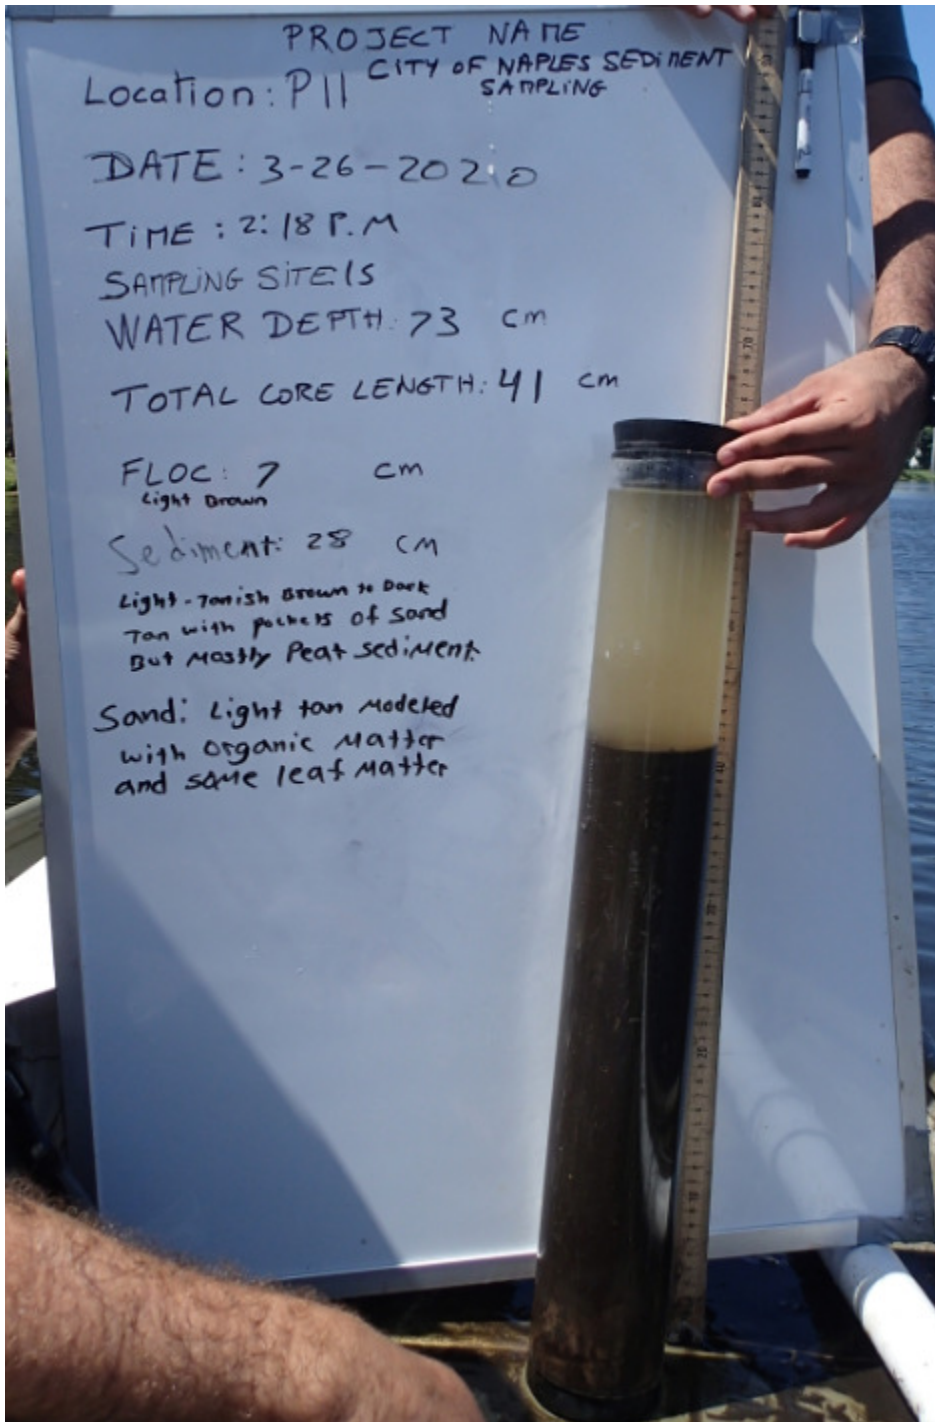 PROJECT NAME
CITY OF NAPLES SEDIMENT
SAMPLING
Location: P11
DATE: 3-26-2020
TIME: 2:18 P.M
SAMPLING SITE 15
WATER DEPTH: 73 cm
TOTAL CORE LENGTH: 41 cm
FLOC: 7 cm
Light Brown
Sediment: 28 cm
Light-Tanish Brown to Dark
Tan with pockets of sand
But Mostly Peat sediment.
Sand: Light tan Modeled
with organic Matter
and some leaf Matter
70
40
30
20
10